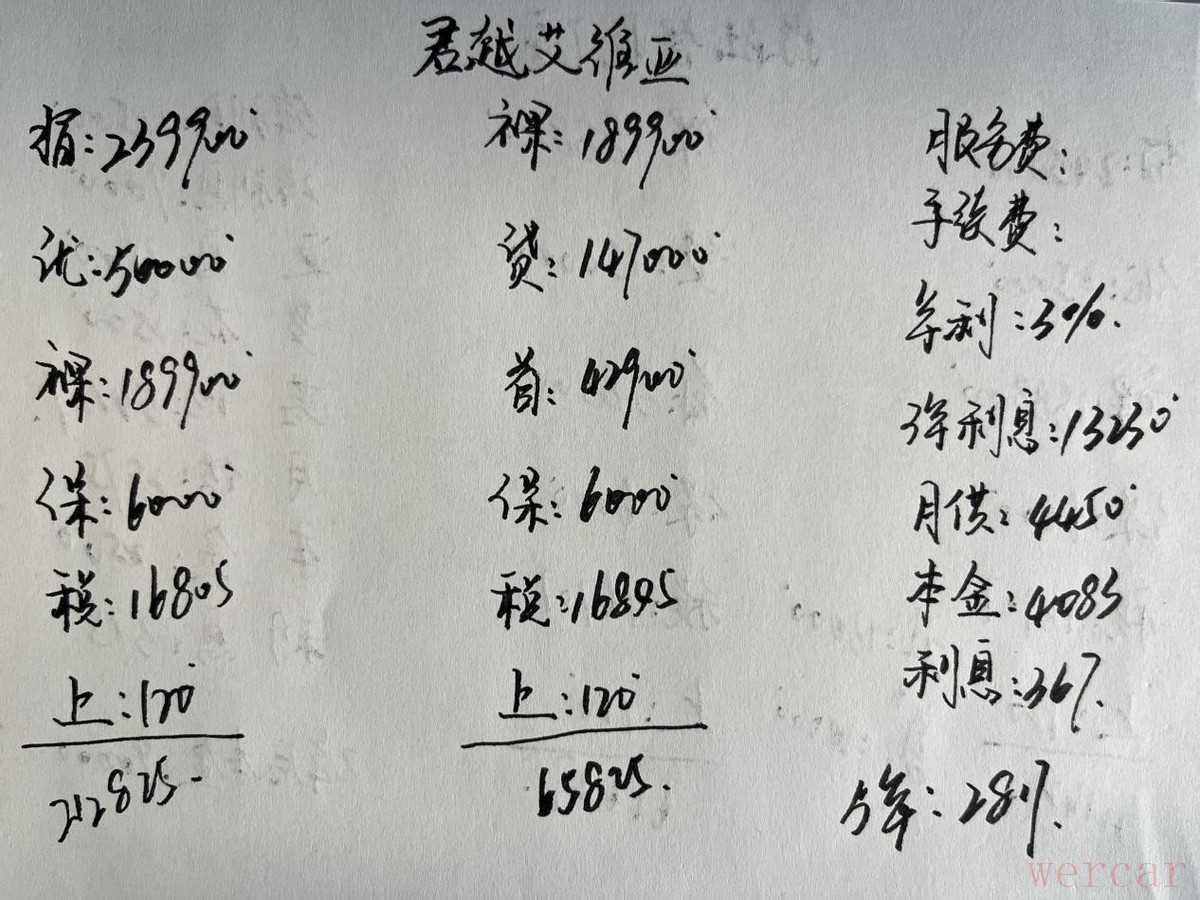 君越艾维亚
指:239900
优:50000
裸:189900
保:6000
税:16805
上:120
212825-
裸:189900
贷:147000
首:42900
保:6000
税:16805
上:120
65825.
服务费:
手续费:
年利:3%.
3年利息:13230
月供:4450
本金:4083
利息:367.
5年:2817.
wercar